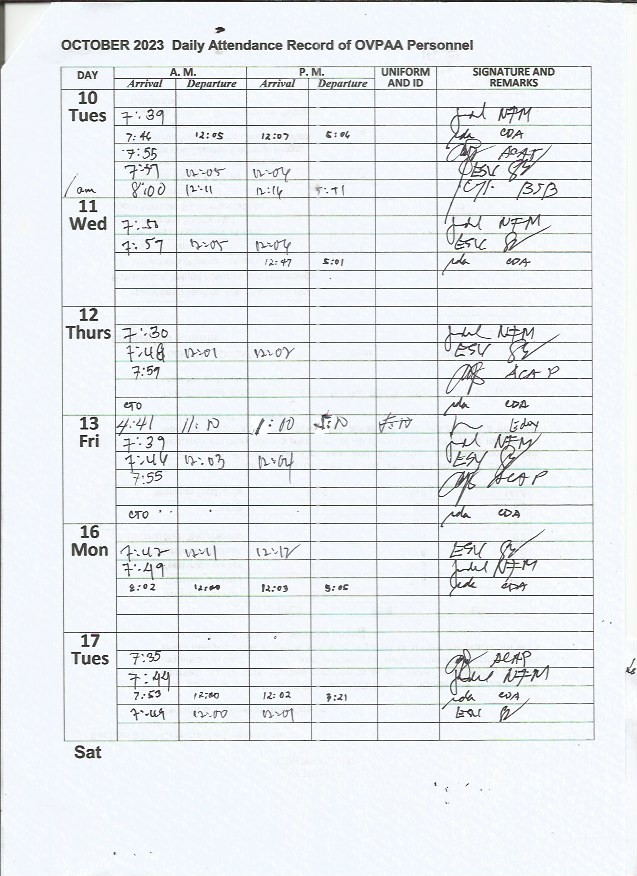 OCTOBER 2023 Daily Attendance Record of OVPAA Personnel
DAY A. M. P. M. UNIFORM AND ID SIGNATURE AND REMARKS
Arrival Departure Arrival Departure
10 Tues
7:39 NFM
7:46 12:05 12:07 5:06 CDA
7:55 ACAP
7:57 12:05 12:06 ESV
1 am 8:00 12:11 12:16 BSB
11 Wed
7:50 NFM
7:57 12:05 12:06 ESV
12:47 5:01 CDA
12 Thurs
7:30 NFM
7:48 12:01 12:02 ESV
7:59 ACAP
CTO CDA
13 Fri
4:41 11:10 1:00 5:10 5:10
7:39 NFM
7:46 12:03 12:04 ESV
7:55 ACAP
CTO CDA
16 Mon
7:42 12:11 12:12 ESV
7:49 NFM
8:02 12:00 12:03 5:05 CDA
17 Tues
7:35 ACAP
7:44 NFM
7:53 12:00 12:02 7:21 CDA
7:49 12:00 12:01 ESV
Sat